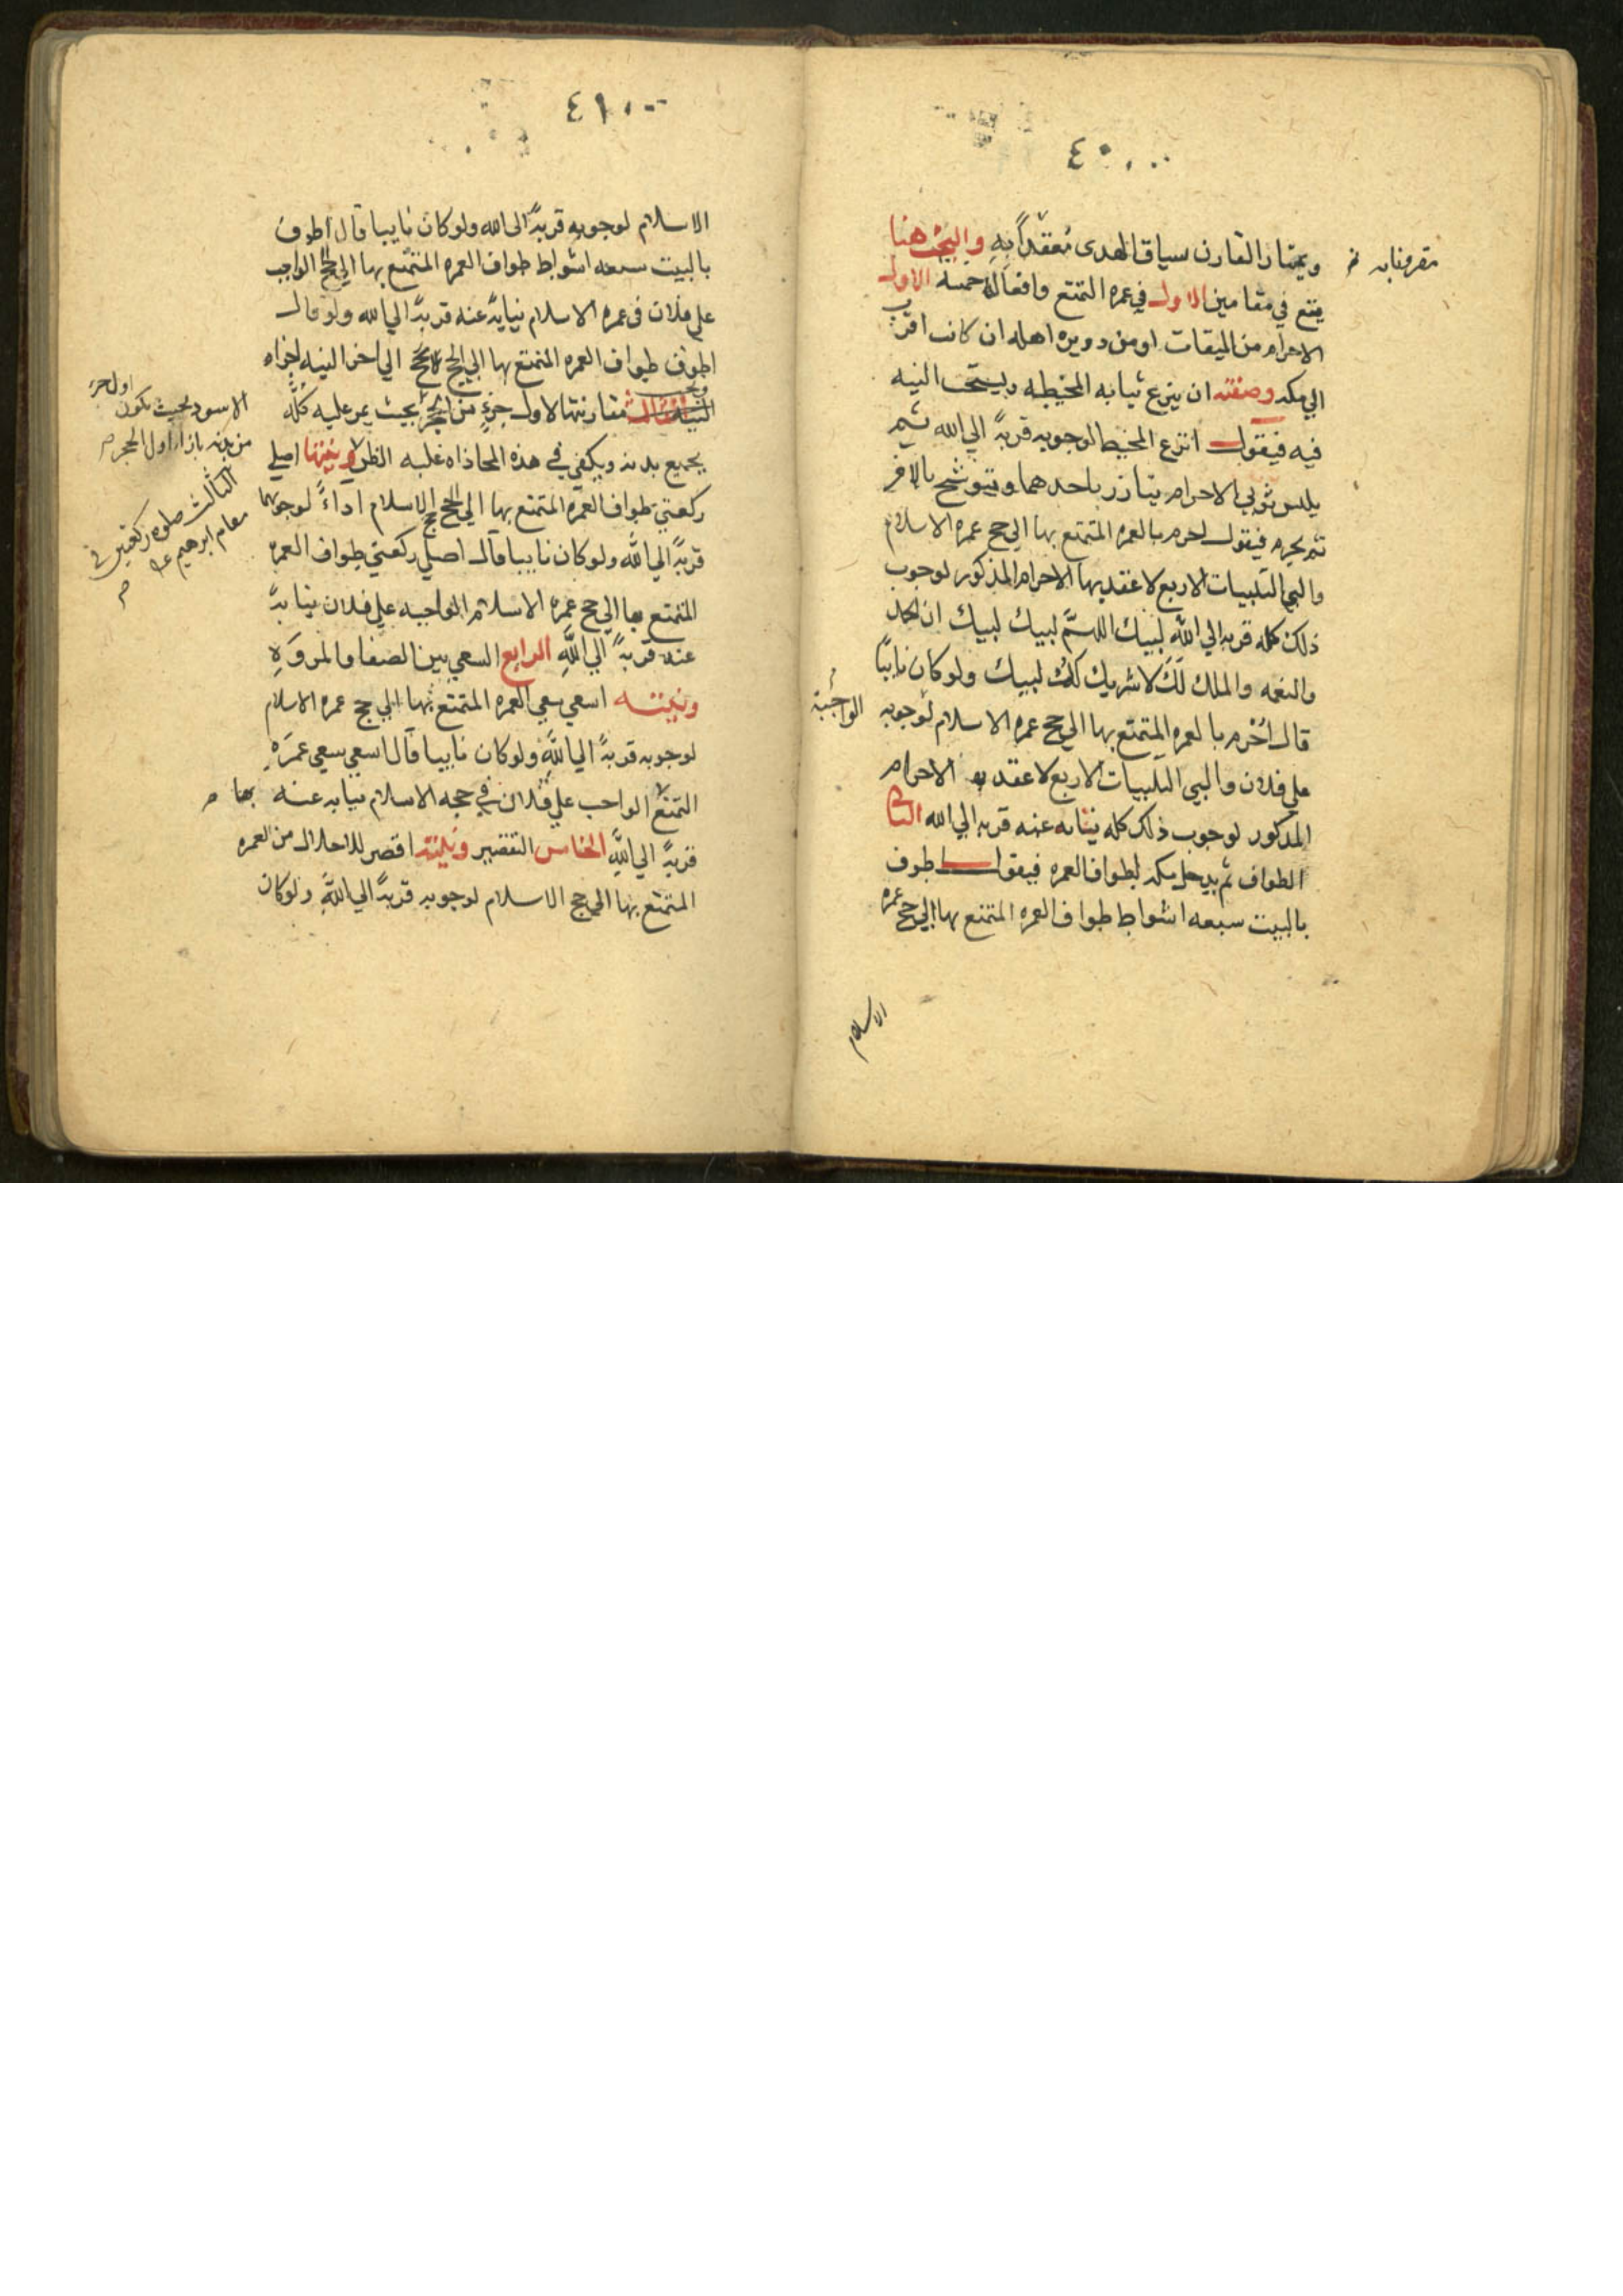 ٤٠
ويمتاز القارن سياق الهدى مُعقِداً بِهِ والبحث هنا
يقع في مقامين الاول في عمره التمتع وافعاله خمسه الاول
الاحرام من الميقات او من دويره اهله ان كانت اقرب
الي مكه وصفته ان ينزع ثيابه المخيطه ويستحب النيه
فيه فيقول انزع المخيط لوجوبه قربةً الي الله ثم
يلبس ثوبي الاحرام يتازر باحدهما ويتوشح بالاخر
ثم يحرم فيقول احرم بالعمره المتمتع بها الي حج عمره الاسلام
والبي التلبيات الاربع لاعقد بها الاحرام المذكور لوجوب
ذلك كله قربه الي الله لبيك اللهمَّ لبيك لبيك ان الحمد
والنعمه والملك لَكَ لا شريك لك لبيك ولو كان نايباً
قال اُحْرم بالعمره المتمتع بها الي حج عمره الاسلام لوجوبه
الواجبة
علي فلان والبي التلبيات الاربع لاعقد به الاحرام
المذكور لوجوب ذلك كله نيابه عنه قربه الي الله الثاني
الطواف ثم يدخل مكه لطواف العمره فيقول اطوف
بالبيت سبعه اشواط طواف العمره المتمتع بها الي حج عمره
الاسلام
٤١
الاسلام لوجوبه قربةً الى الله ولو كان نايبا قال اطوف
بالبيت سبعه اشواط طواف العمره المتمتع بها الي الحج الواجب
علي فلان في عمره الاسلام نيابةً عنه قربةً الي الله ولو قال
اطوف طواف العمره المتمتع بها الي الحج الي اخر النيه اجزاه
ويجب مقارنتها لاول جزءٍ من الحجر بحيث يمر عليه كُلّه
الاسود بحيث يكون اول جزء
من بدنه بازاء اول الحجر
بجميع بدنه ويكفي في هذه المحاذاه غلبه الظن ونيتها اصلي
الثالث صلوه ركعتين في
مقام ابرهيم
ركعتي طواف العمره المتمتع بها الي الحج حج الاسلام اداءً لوجوبهما
قربةً الي الله ولو كان نايبا قال اصلي ركعتي طواف العمره
المتمتع بها الي حج عمره الاسلام الواجبه علي فلان نيابةً
عنه قربةً الي اللهِ الرابع السعي بين الصفا والمروَهِ
ونيته اسعي سعي العمره المتمتع بها الي حج عمره الاسلام
لوجوبه قربةً الي اللهِ ولو كان نايبا قال اسعي سعي عمرَهِ
التمتع الواجب علي فلان في حجه الاسلام نيابه عنه بها
قربةً الي اللهِ الخامس التقصير ونيته اقصر للاحلال من العمره
المتمتع بها الي حج الاسلام لوجوبه قربةً الي اللهِ ولو كان